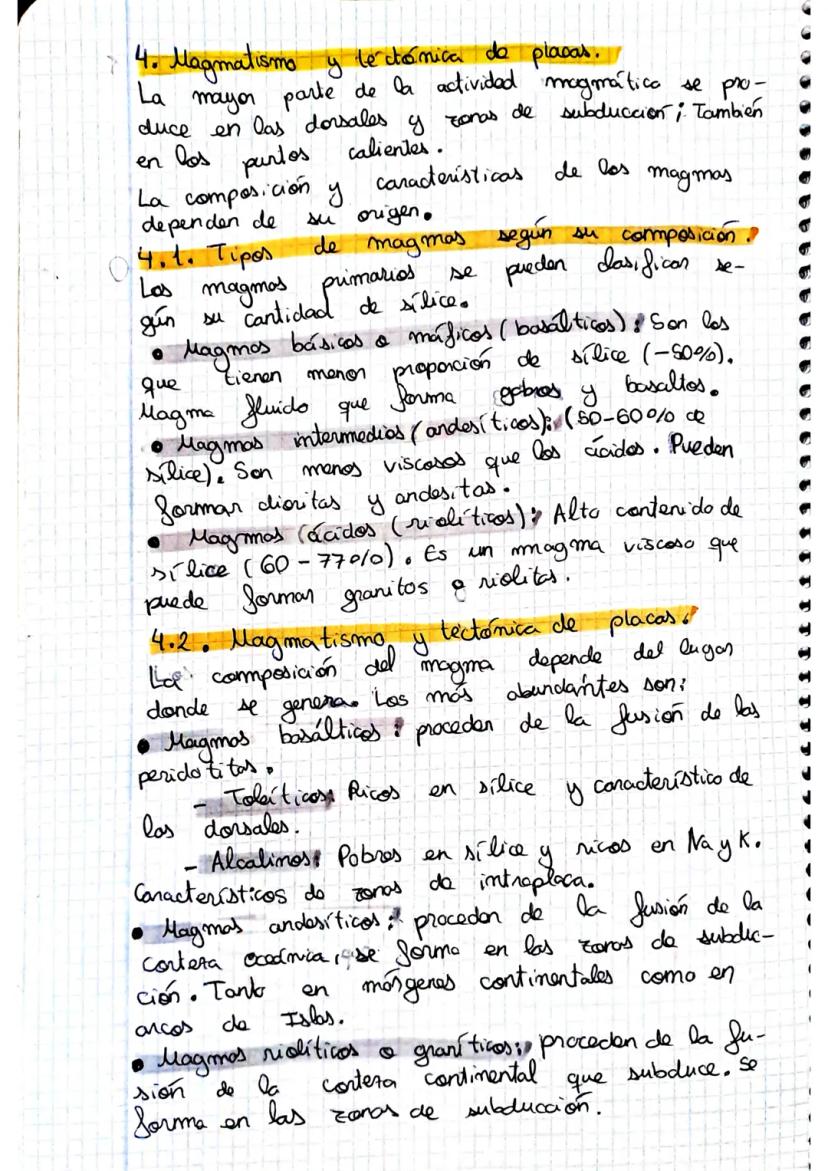 4. Magmatismo y tectónica de placas.
La mayor parte de la actividad magmática se pro-
duce en las dorsales y zonas de subducción; También
en los puntos calientes.
La composición y características de los magmas
dependen de su origen.
4.1. Tipos de magmas según su composición.
Los magmas primarios se pueden clasificar se-
gún su cantidad de sílice.
• Magmas básicos o máficos (basálticos): Son los
que tienen menor proporción de sílice (-50%).
Magma fluido que forma gabros y basaltos.
• Magmas intermedios (andesíticos): (50-60% de
sílice). Son menos viscosos que los ácidos. Pueden
formar dioritas y andesitas.
• Magmas (ácidos (riolíticos): Alto contenido de
sílice (60-77%). Es un magma viscoso que
puede formar granitos o riolitas.
4.2. Magmatismo y tectónica de placas.
La composición del magma depende del lugar
donde se genera. Los más abundantes son:
• Magmas basálticos: proceden de la fusión de las
peridotitas.
- Toleíticos: Ricos en sílice y característico de
las dorsales.
- Alcalinos: Pobres en sílice y ricos en Na y K.
Característicos de zonas de intraplaca.
• Magmas andesíticos: proceden de la fusión de la
corteza oceánica, se forma en las zonas de subduc-
ción. Tanto en márgenes continentales como en
arcos de Islas.
• Magmas riolíticos o graníticos: proceden de la fu-
sión de la corteza continental que subduce. Se
forma en las zonas de subducción.